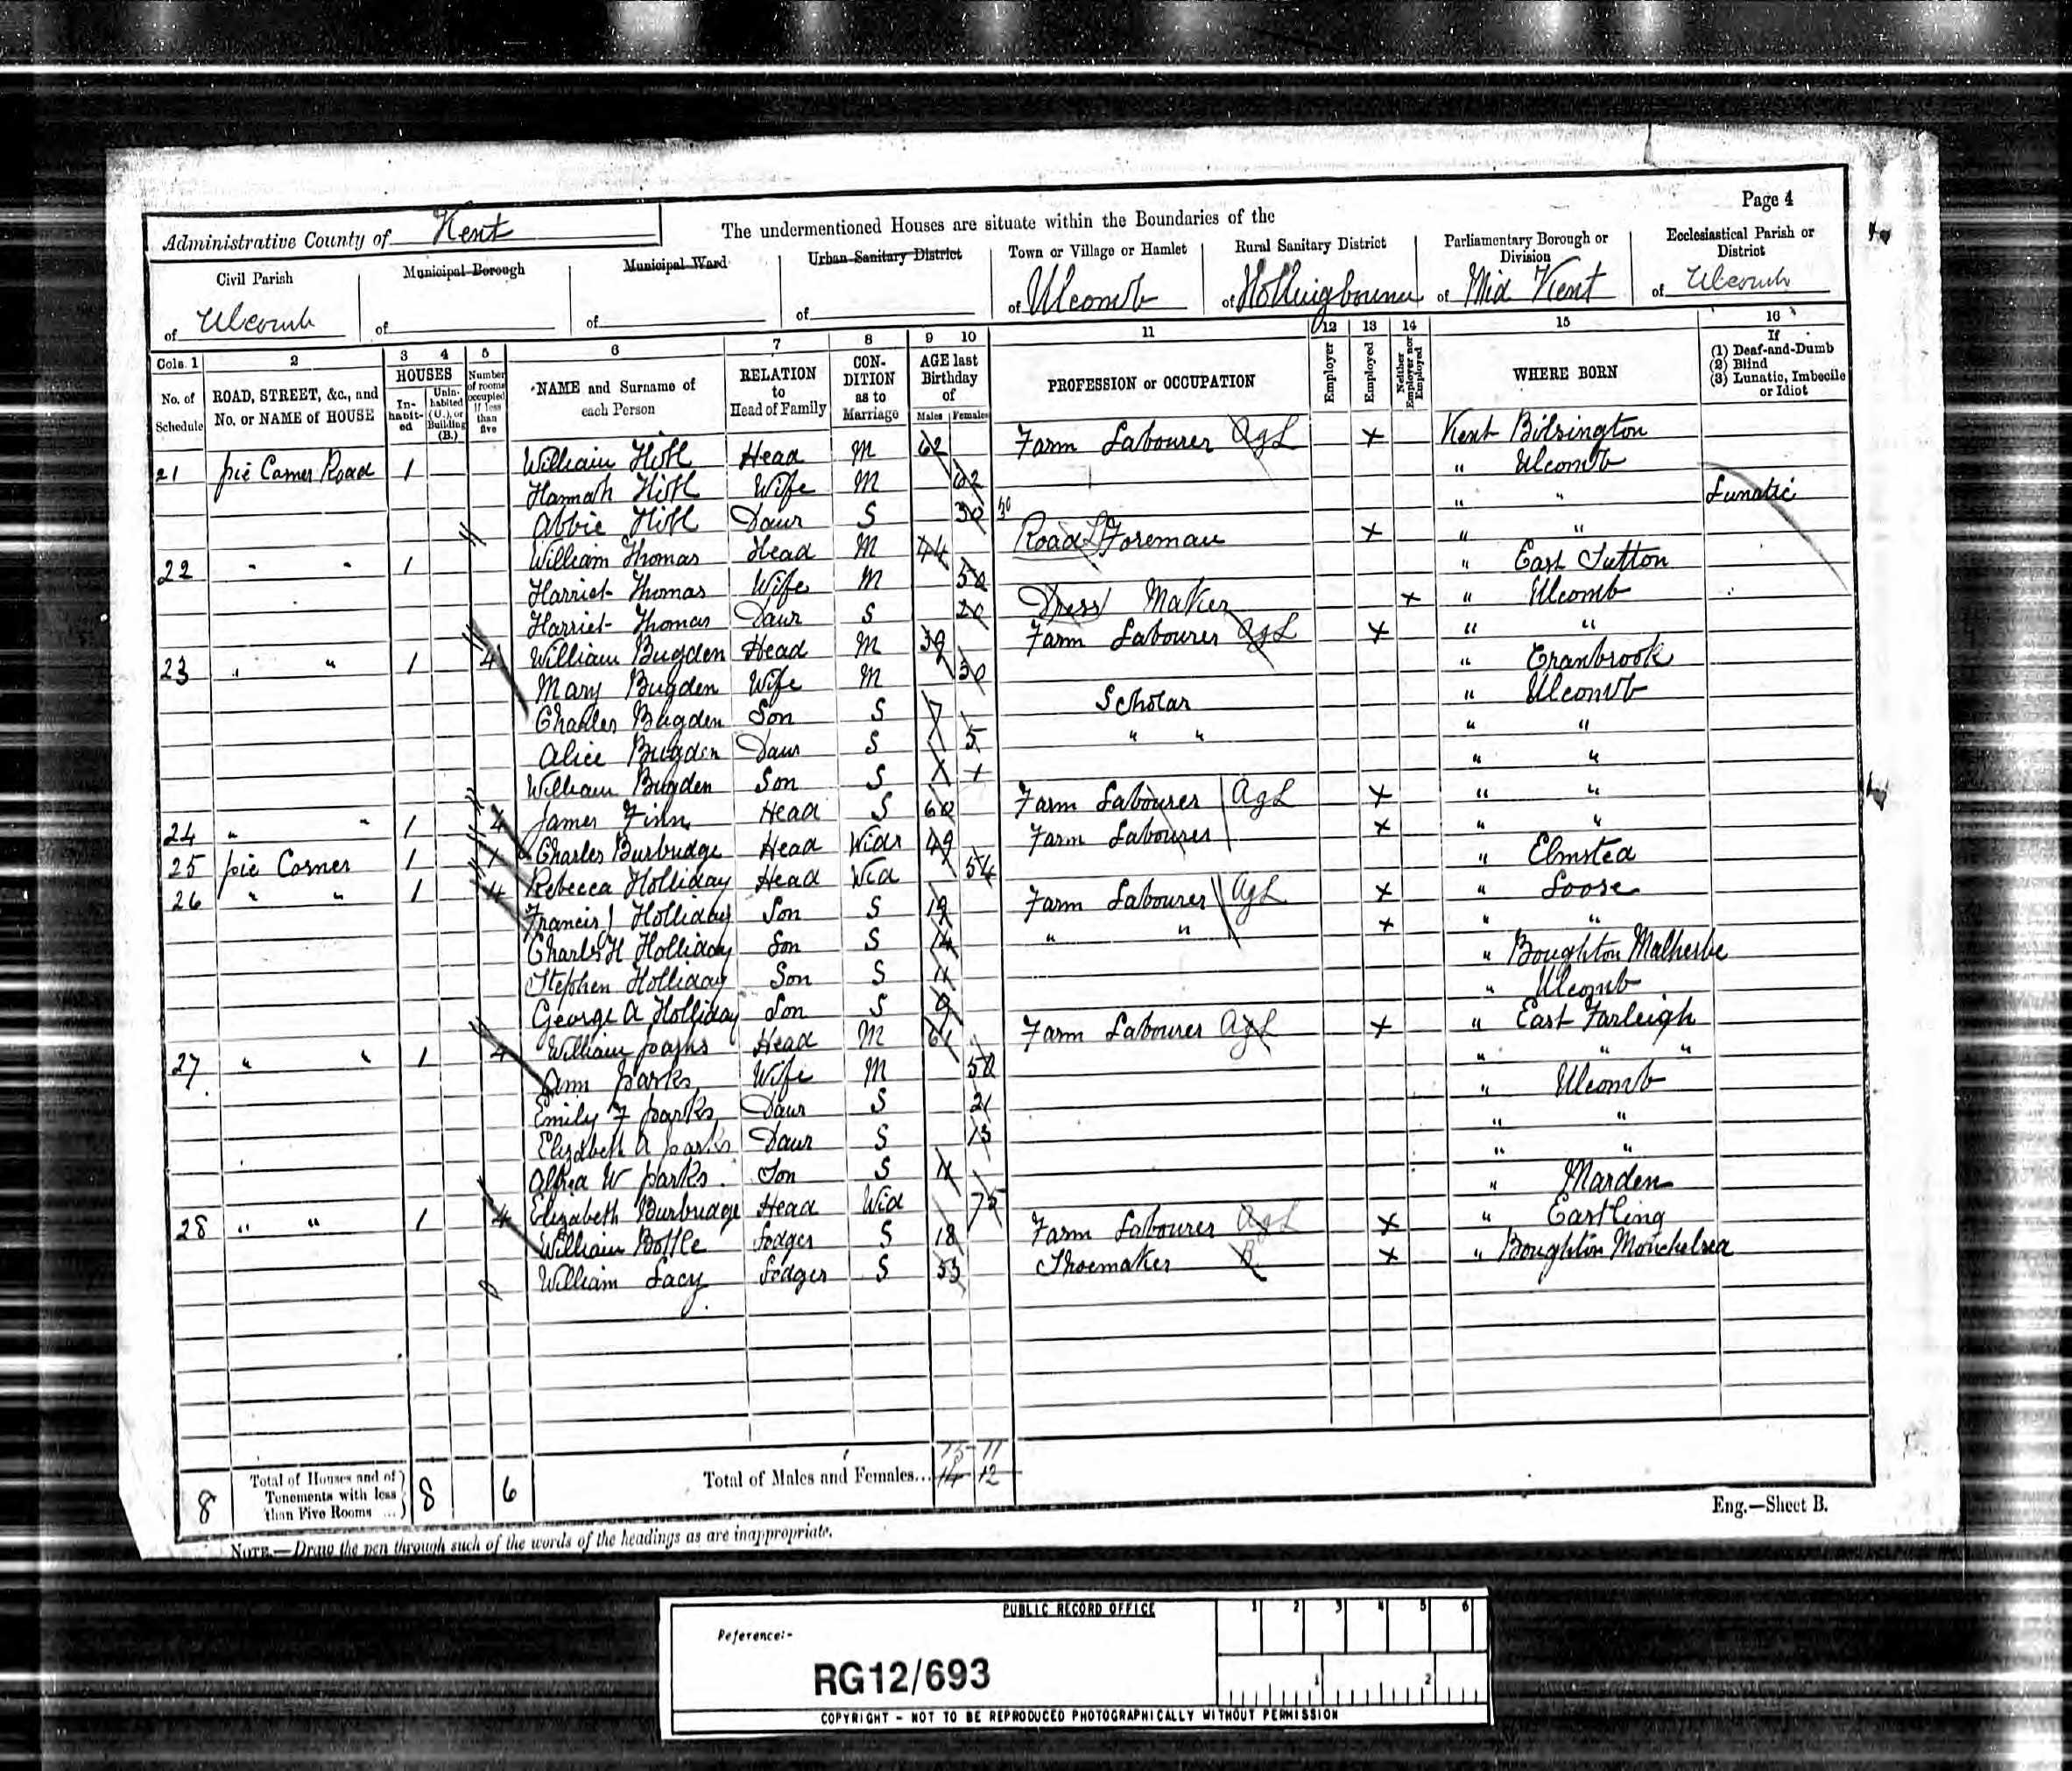 Page 4
Administrative County of Kent
The undermentioned Houses are situate within the Boundaries of the
Civil Parish of Ulcomb
Municipal Borough of
Municipal Ward of
Urban Sanitary District of
Town or Village or Hamlet of Ulcomb
Rural Sanitary District of Hollingbourne
Parliamentary Borough or Division of Mid Kent
Ecclesiastical Parish or District of Ulcomb
Cols. 1 2 3 4 5 6 7 8 9 10 11 12 13 14 15 16
No. of Schedule
ROAD, STREET, &c., and No. or NAME of HOUSE
HOUSES
In-habit-ed
Unin-habited (U.), or Building (B.)
Number of rooms occupied if less than five
NAME and Surname of each Person
RELATION to Head of Family
CON-DITION as to Marriage
AGE last Birthday of
Males Females
PROFESSION or OCCUPATION
Employer
Employed
Neither Employer nor Employed
WHERE BORN
If (1) Deaf-and-Dumb (2) Blind (3) Lunatic, Imbecile or Idiot
21 pie Corner Road 1 William Hills Head M 62 Farm Labourer AgL x Kent Bilsington
Hannah Wife M 62 " Ulcomb
Abbie Daur S 30 30 " " Lunatic
22 " " 1 William Thomas Head M 44 Road L Foreman x " "
Harriet Thomas Wife M 50 " East Sutton
Harriet Thomas Daur S 20 Dress Maker x " Ulcomb
23 " " 1 4 William Bugden Head M 39 Farm Labourer AgL x " "
Mary Bugden Wife M 30 " Cranbrook
Charles Bugden Son S 7 Scholar " Ulcomb
Alice Bugden Daur S 5 " " " "
William Bugden Son S " "
24 " " 1 4 James Finn Head S 60 Farm Labourer AgL x " "
25 pie Corner 1 Charles Burbudge Head Widr 49 Farm Labourer x " "
26 " " 1 4 Rebecca Holliday Head Wid 54 " Elmsted
Francis J Holliday Son S 19 Farm Labourer AgL x " Loose
Charles H Holliday Son S 14 " " x " "
Stephen Holliday Son S 11 " Boughton Malherbe
George A Holliday Son S 9 " Ulcomb
27 " " 1 4 William parks Head M 61 Farm Labourer AgL x " East Farleigh
Ann parks Wife M 50 " " "
Emily F parks Daur S 21 " Ulcomb
Elizabeth A parks Daur S 13 " "
Alfred W parks Son S 11 " "
28 " " 1 4 Elizabeth Burbudge Head Wid 75 " Marden
William Bottle Lodger S 18 Farm Labourer AgL x " Eastling
William Lacy Lodger S 53 Shoemaker x " Boughton Monchelsea
15 11
8 Total of Houses and of Tenements with less than Five Rooms ... 8 6 Total of Males and Females... 14 12
Eng.—Sheet B.
NOTE.—Draw the pen through such of the words of the headings as are inappropriate.
PUBLIC RECORD OFFICE
1 2 3 4 5 6
Reference:-
RG12/693
1 2
COPYRIGHT - NOT TO BE REPRODUCED PHOTOGRAPHICALLY WITHOUT PERMISSION